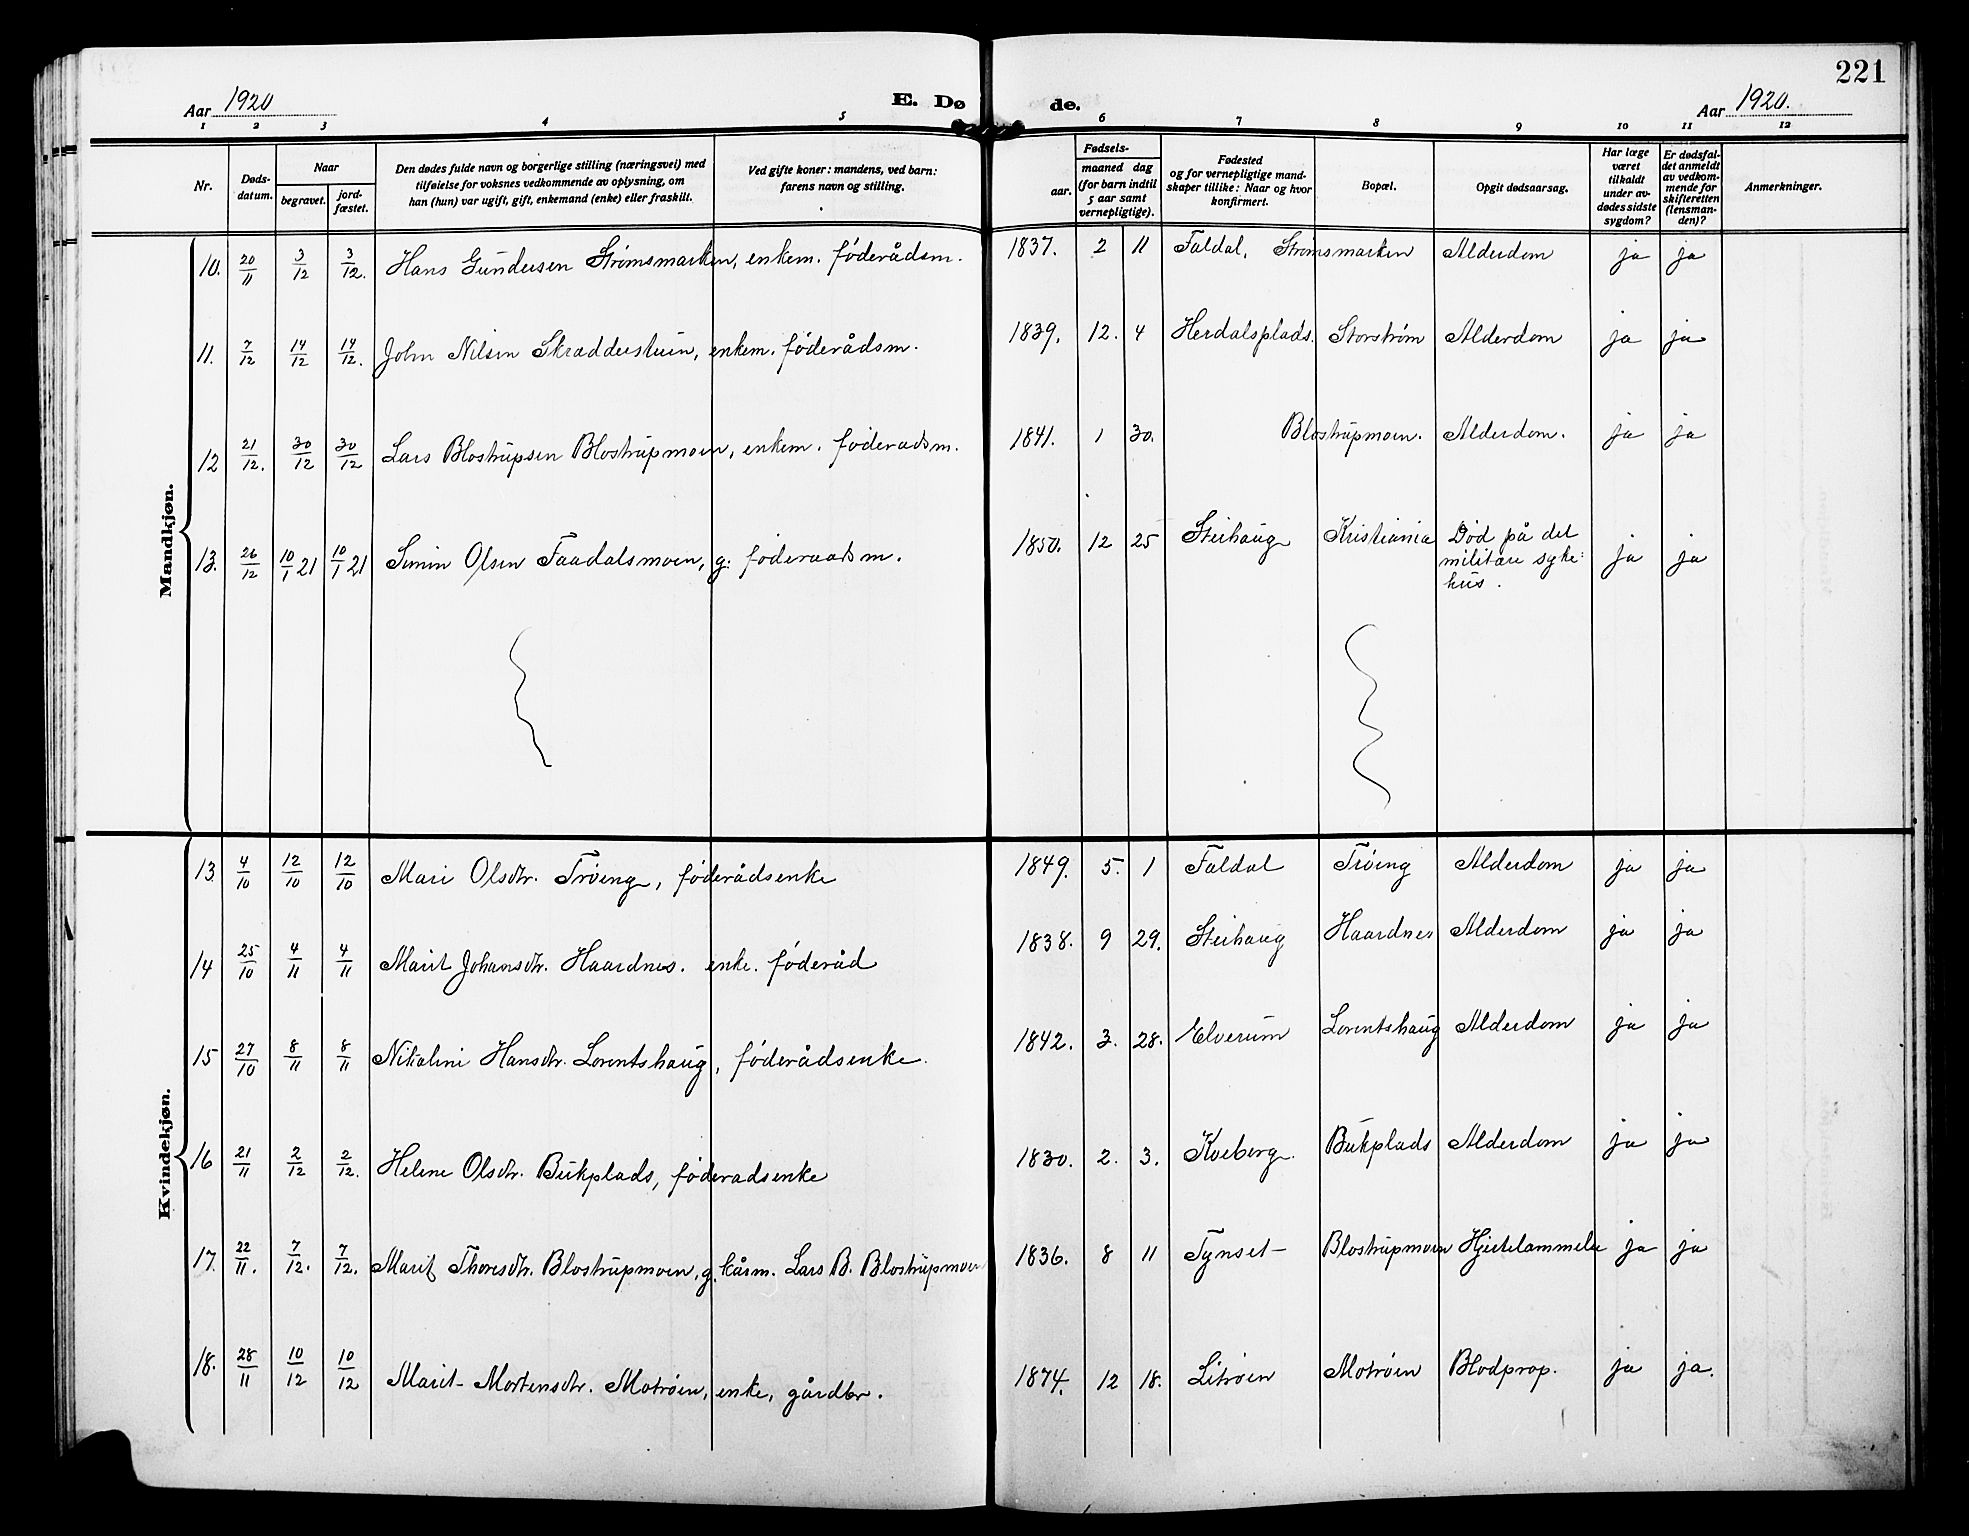 221
Aar 1920
E. Dø
de.
Aar 1920.
1 2 3 4 5 6 7 8 9 10 11 12
Nr.
Døds-
datum.
Naar
begravet.
jord-
fæstet.
Den dødes fulde navn og borgerlige stilling (næringsvei) med
tilføielse for voksnes vedkommende av oplysning, om
han (hun) var ugift, gift, enkemand (enke) eller fraskilt.
Ved gifte koner: mandens, ved barn:
farens navn og stilling.
Fødsels-
aar.
maaned dag
(for barn indtil
5 aar samt
vernepligtige).
Fødested
og for vernepligtige mand-
skaper tillike: Naar og hvor
konfirmert.
Bopæl.
Opgit dødsaarsag.
Har læge
været
tilkaldt
under av-
dødes sidste
sygdom?
Er dødsfal-
det anmeldt
av vedkom-
mende for
skifteretten
(lensman-
den)?
Anmerkninger.
Mandkjøn.
10. 20/11 3/12 3/12. Hans Gundersen Strømsmarken, enkem. føderådsm. 1837. 2 11 Faldal, Strømsmarken Alderdom ja ja
11. 7/12 14/12 14/12. John Nilsen Skrædderstuen, enkem. føderådsm. 1839. 12. 4 Herdalsplads. Storstrøm Alderdom ja ja
12 21/12. 30/12 30/12 Lars Blostrupsen Blostrupmoen, enkem. føderadsm. 1841. 1 30. Blostrupmoen. Alderdom. ja ja
13. 26/12 10/1 21 10/1 21 Simen Olsen Faadalsmoen, g: føderaadsm. 1850. 12 25 Steihaug Kristiania Død på det
militære syke:
hus.
ja ja
Kvindekjøn.
13 4/10 12/10 12/10 Mari Olsdtr. Trøeng, føderådsenke 1849. 5. 1 Faldal Trøeng Alderdom ja ja
14 25/10 4/11 4/11 Marit Johansdtr. Haardnes. enke. føderåd 1838. 9 29. Steihaug Haardnes Alderdom ja ja
15 27/10 8/11 8/11 Nikoline Hansdtr. Lorentshaug, føderådsenke. 1842. 3. 28. Elverum Lorentshaug Alderdom ja ja
16 21/11 2/12 2/12. Helene Olsdtr. Bukplads, føderadsenke 1830. 2. 3. Kveberg. Bukplads Alderdom ja ja
17. 22/11. 7/12. 7/12. Marit Thoresdtr. Blostrupmoen, g. kårm. Lars B. Blostrupmoen 1836. 8 11 Tynset Blostrupmoen Hjertelammelse ja ja
18. 28/11 10/12 10/12 Marit Mortensdtr. Motrøen, enke, gårdbr. 1874. 12 18. Litrøen Motrøen Blodprop. ja ja.